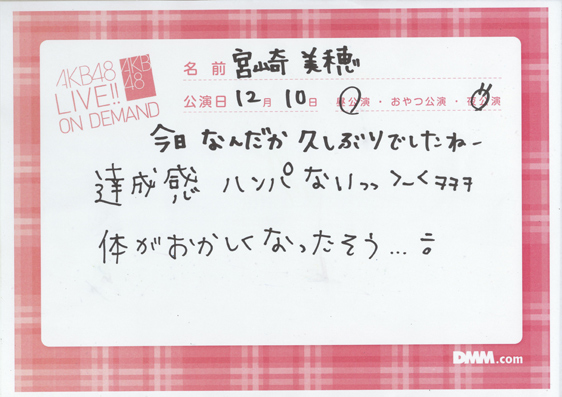 AKB48
LIVE!!
ON DEMAND
AKB
48
名前 宮崎 美穂
公演日 12月 10日 昼公演・おやつ公演・夜公演
今日 なんだか 久しぶりでしたねー
達成感 ハンパないっっ >~<ヨヨヨ
体がおかしくなったそう…
DMM.com